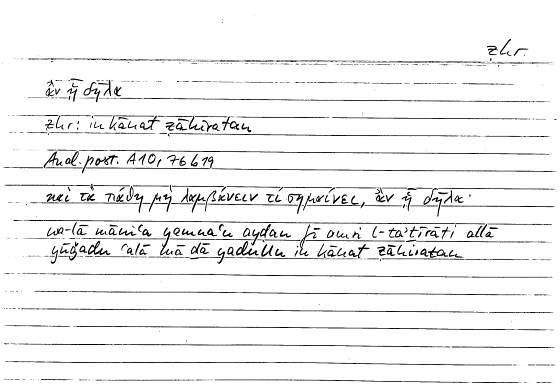 ẓhr.
ἂν ᾖ δῆλα
ẓhr: in kānat ẓāhiratan
Anal. post. A10, 76b19
καὶ τὰ πάθη μὴ λαμβάνειν τί σημαίνει, ἂν ᾖ δῆλα·
wa-lā māniʿa yamnaʿu ayḍan fī amri l-taʾṯīrāti allā
yūḫaḏu ʿalā mā ḏā yadullu in kānat ẓāhiratan